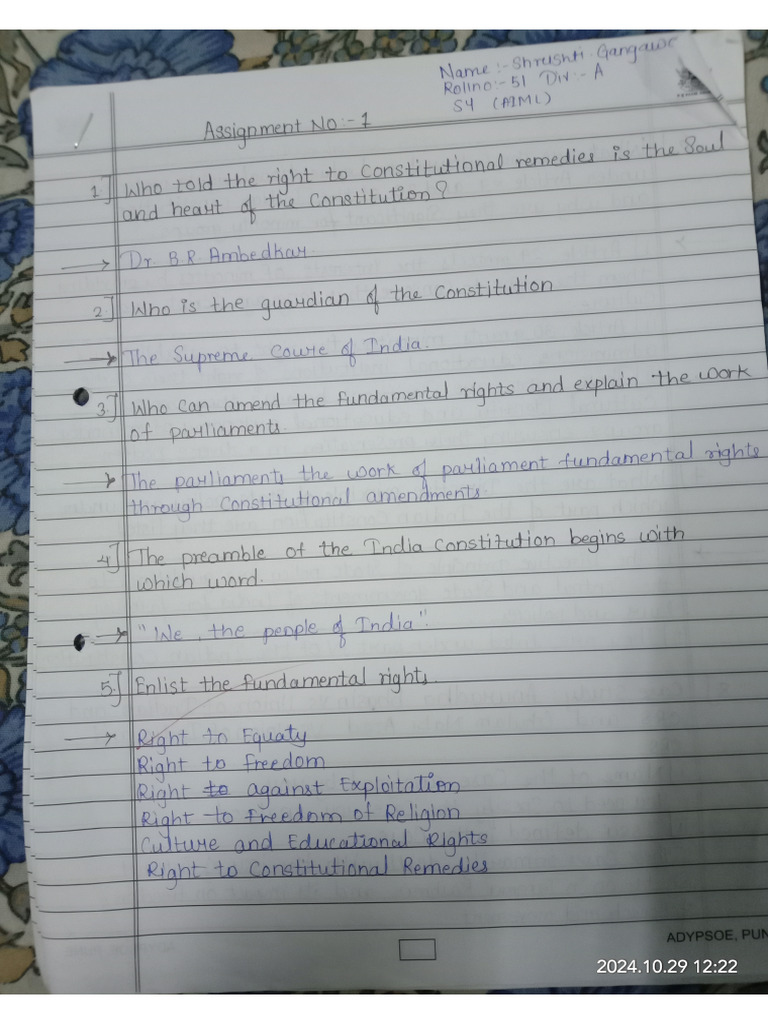 Name :- Shrushti Gangawe
Rollno:- 51 Div :- A
SY (AIML)
Assignment No :- 1
1] Who told the right to constitutional remedies is the Soul
and heart of the Constitution?
→ Dr. B.R. Ambedkar.
2] Who is the guardian of the Constitution
→ The Supreme Coure of India.
3] Who can amend the fundamental rights and explain the work
of parliaments.
→ The parliaments the work of parliament fundamental rights
through Constitutional amendments
4] The preamble of the India Constitution begins with
which word.
→ "We, the penple of India".
5] Enlist the fundamental rights.
→ Right to Equaty
Right to freedom
Right to against Exploitation
Right to freedom of Religion
Culture and Educational Rights
Right to Constitutional Remedies
ADYPSOE, PUN
2024.10.29 12:22